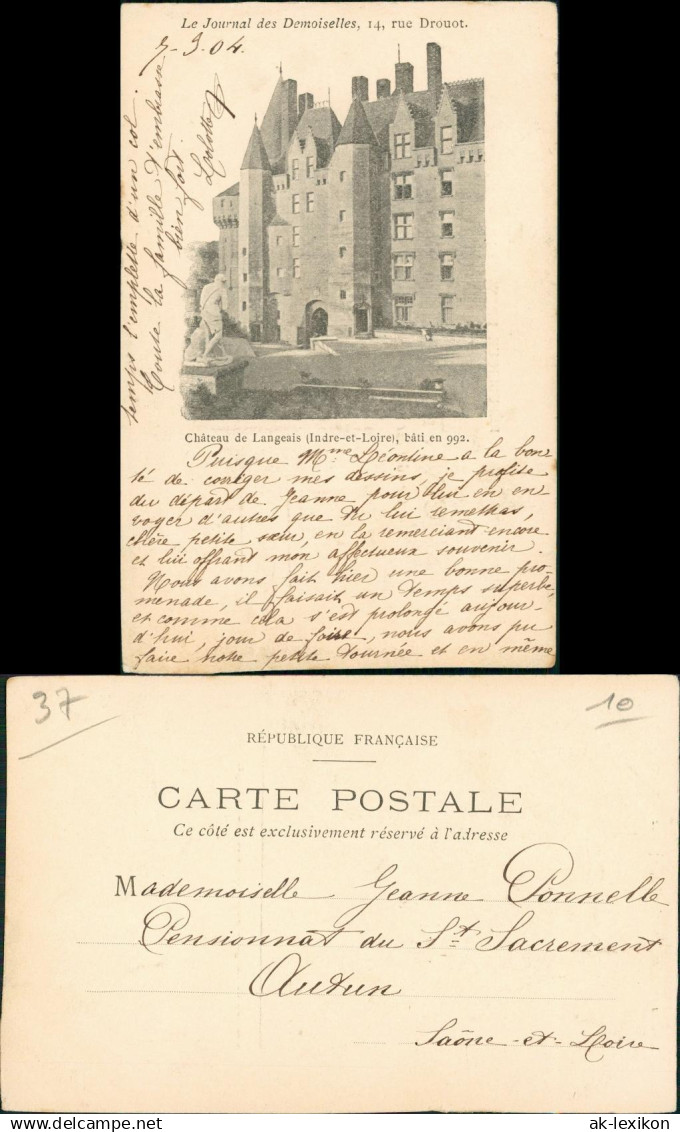 Le Journal des Demoiselles, 14, rue Drouot.
7-3-04.
Château de Langeais (Indre-et-Loire), bâti en 992.
Puisque Mme Léontine a la bon-
té de corriger mes dessins, je profite
du départ de Jeanne pour lui en en
voyer d'autres que tu lui remettras,
chère petite sœur, en la remerciant encore
et lui offrant mon affectueux souvenir.
Nous avons fait hier une bonne pro-
menade, il faisait un temps superbe,
et comme cela s'est prolongé aujour-
d'hui, jour de foire, nous avons pu
faire notre petite tournée et en même
temps l'emplette d'un col.
Toute la famille t'embrasse
bien fort.
37
10
RÉPUBLIQUE FRANÇAISE
CARTE POSTALE
Ce côté est exclusivement réservé à l'adresse
Mademoiselle Jeanne Ponnelle
Pensionnat du St Sacrement
Autun
Saône-et-Loire
www.delcampe.net
ak-lexikon